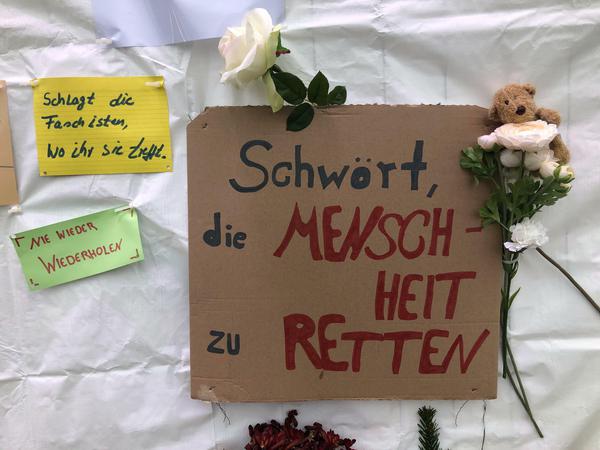 Schlagt die
Faschisten,
wo ihr sie trefft.
NIE WIEDER
WIEDERHOLEN
Schwört,
die MENSCH-
HEIT
zu RETTEN